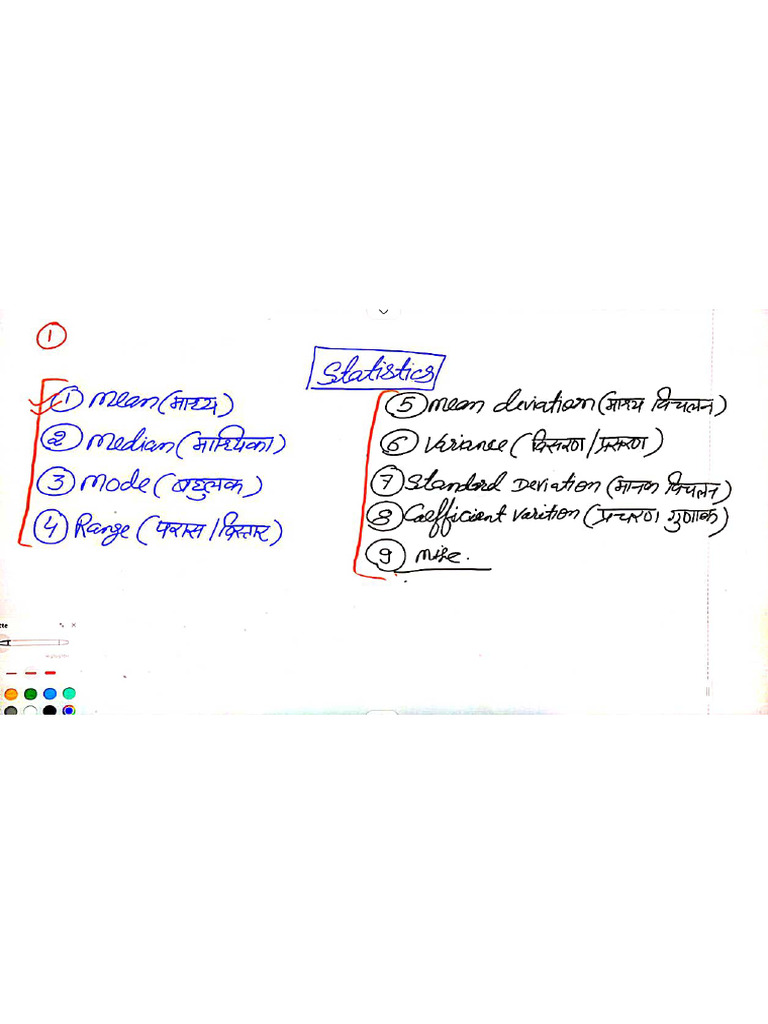 ①
Statistics
① Mean (माध्य)
② Median (माध्यिका)
③ Mode (बहुलक)
④ Range (परास/विस्तार)
⑤ mean deviation (माध्य विचलन)
⑥ Variance (विसरण/प्रसरण)
⑦ Standard Deviation (मानक विचलन)
⑧ Coefficient Varition (प्रचरण गुणांक)
⑨ misc.